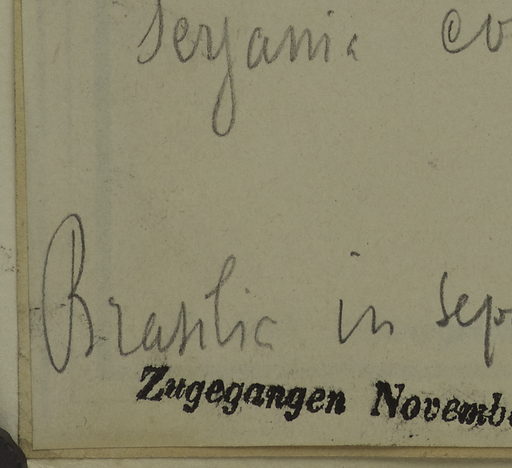 Serjania co
Brasilia in sep
Zugegangen Novembe